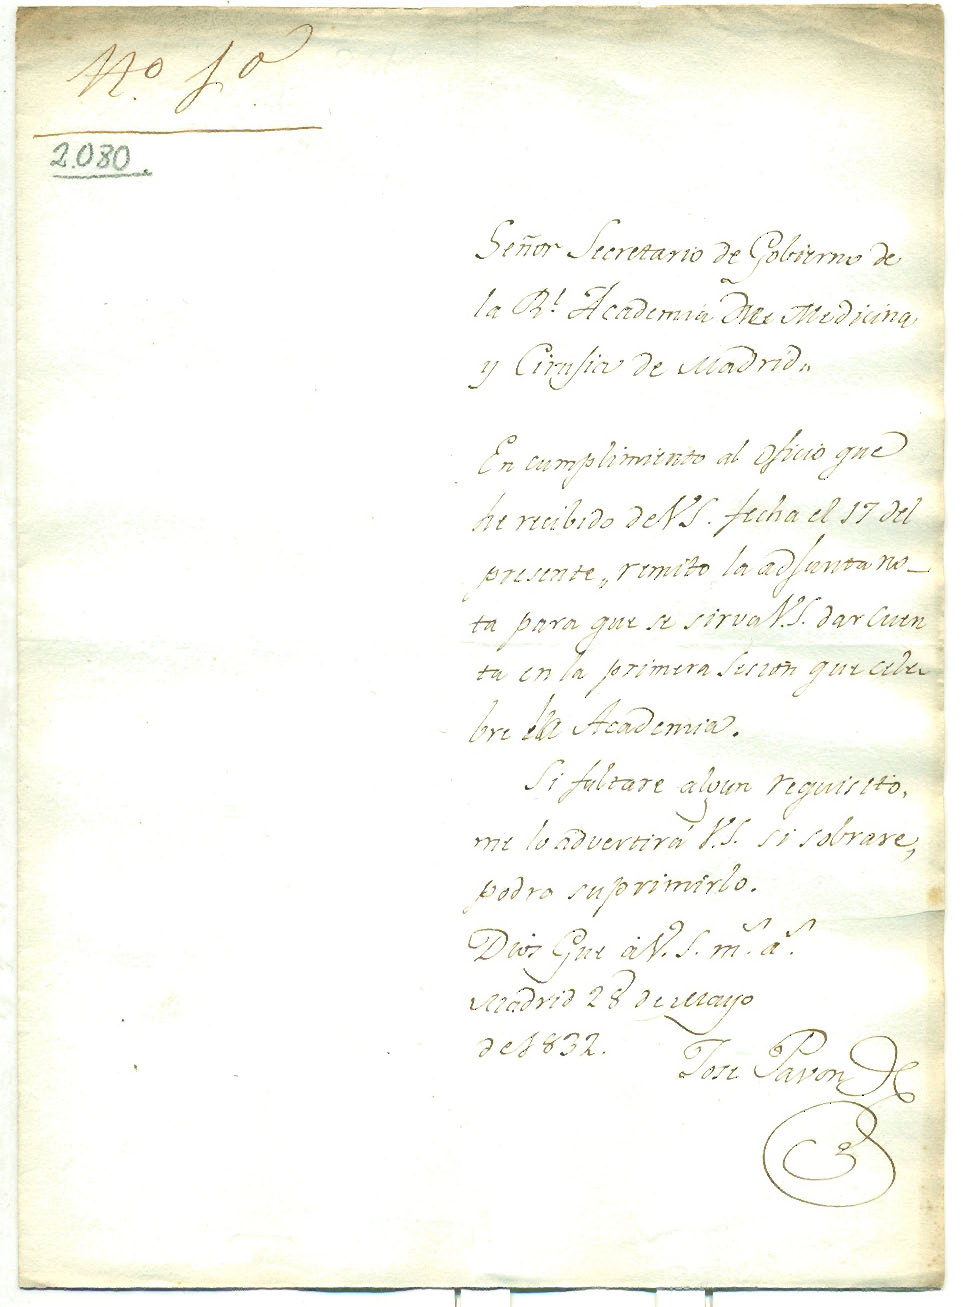 Nº 1º
2.080.
Señor Secretario de Gobierno de
la Rl. Academia de Medicina
y Cirujia de Madrid„
En cumplimiento al oficio que
he recibido de VS. fecha el 17 del
presente„ remito la adjunta no-
ta para que se sirva VS. dar cuen
ta en la primera Sesion que cele-
bre la Academia.
Si faltare algun requisito,
me lo advertirá V.S. si sobrare,
podra suprimirlo.
Dios Gue á V.S. ms. as.
Madrid 28 de Mayo
de 1832.
Jose Pavon